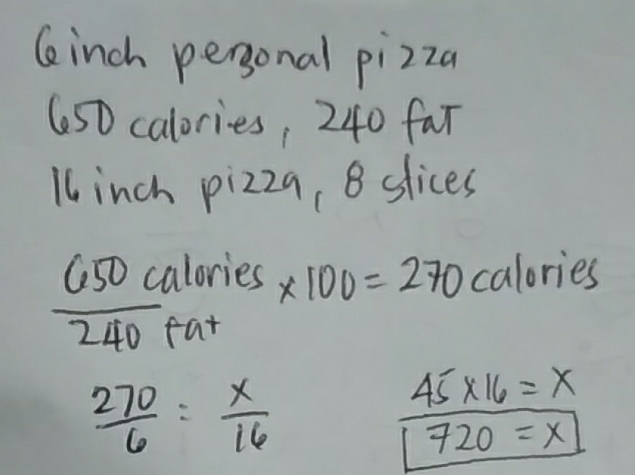 6 inch personal pizza
650 calories, 240 fat
16 inch pizza, 8 slices
650 calories × 100 = 270 calories
240 fat
270/6 = x/16
45 × 16 = x
720 = x